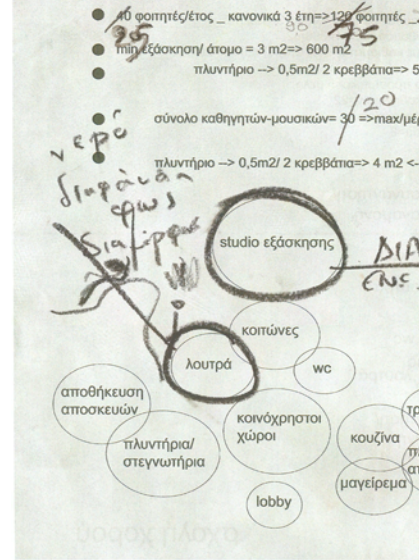 40 φοιτητές/έτος _ κανονικά 3 έτη=>120 φοιτητές _
25
90
75
min εξάσκηση/ άτομο = 3 m2=> 600 m2
πλυντήριο --> 0,5m2/ 2 κρεββάτια=> 5
20
σύνολο καθηγητών-μουσικών= 30 =>max/μέρ
νερό
πλυντήριο --> 0,5m2/ 2 κρεββάτια=> 4 m2 <-
φως
studio εξάσκησης
ΔΙΑ
κοιτώνες
λουτρά
wc
αποθήκευση
αποσκευών
κοινόχρηστοι
χώροι
κουζίνα
πλυντήρια/
στεγνωτήρια
μαγείρεμα
lobby